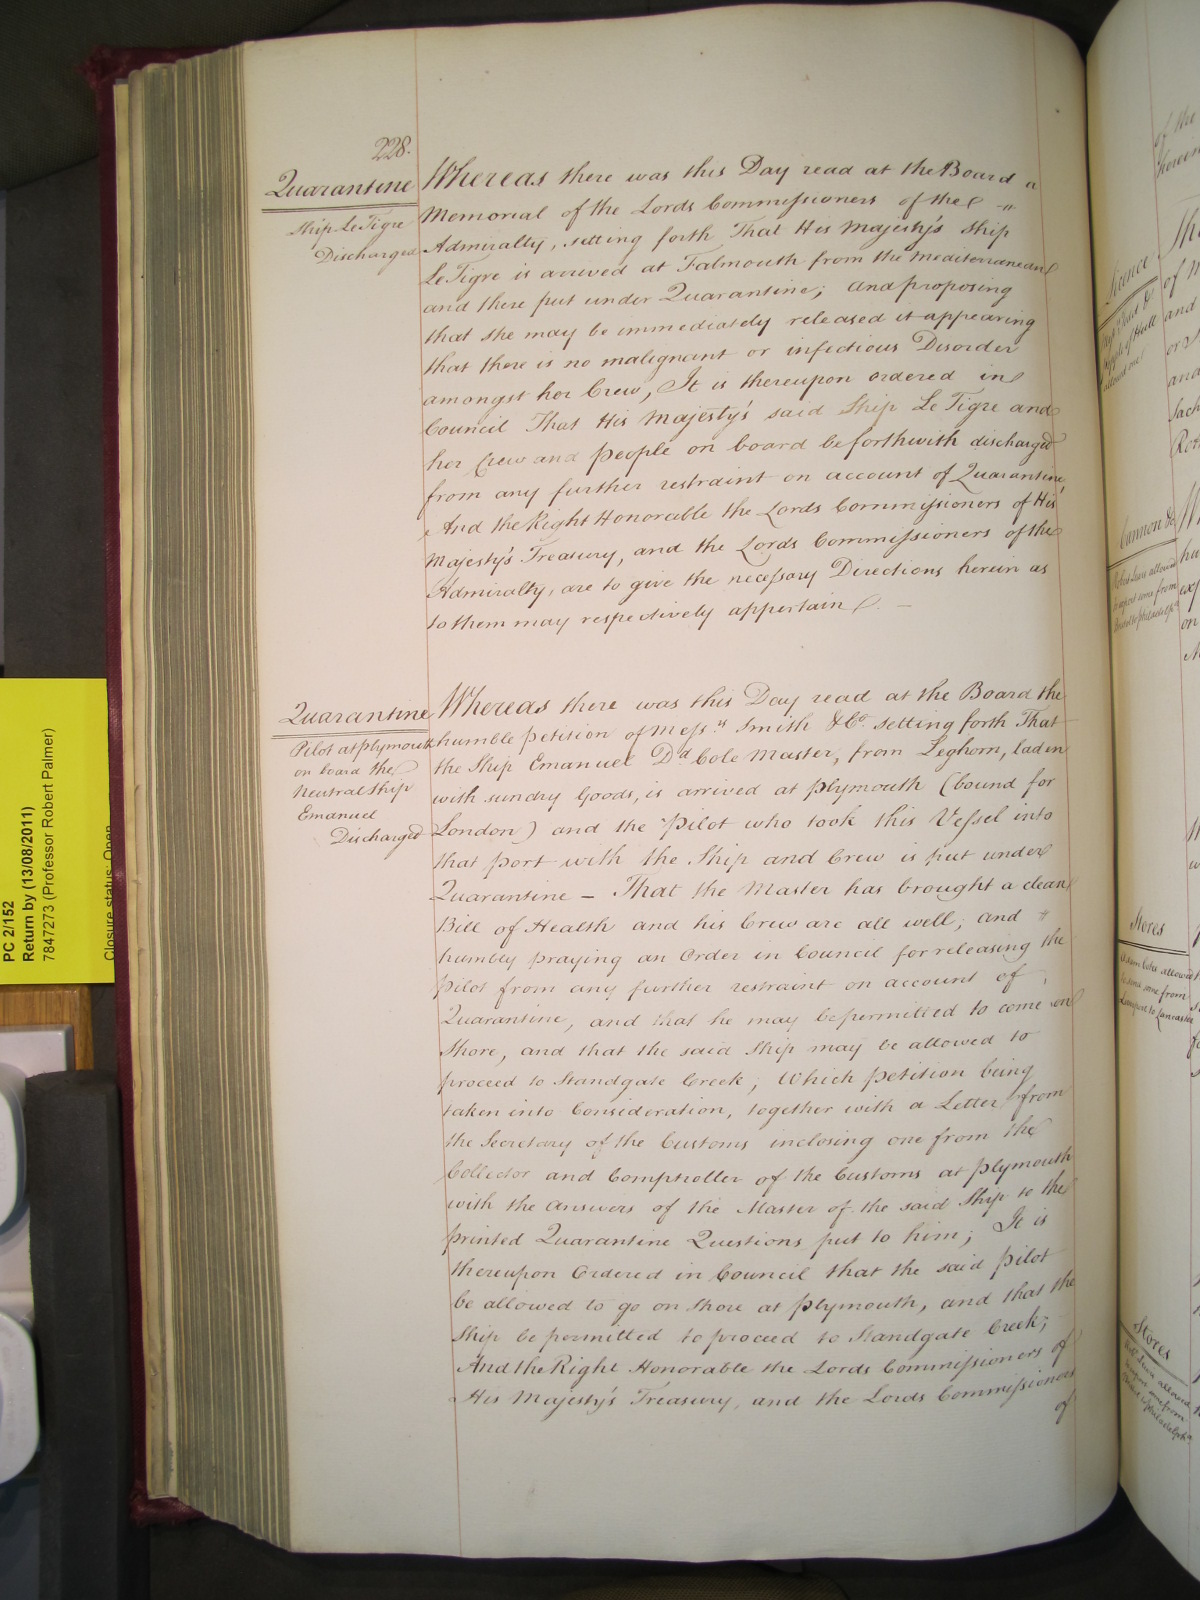 228.
Quarantine
Ship Le Tigre
Discharged
Whereas there was this Day read at the Board a
Memorial of the Lords Commissioners of the
Admiralty, setting forth That His Majesty's Ship
Le Tigre is arrived at Falmouth from the Mediterranean
and there put under Quarantine; and proposing
that she may be immediately released it appearing
that there is no malignant or infectious Disorder
amongst her Crew, It is thereupon ordered in
Council That His Majesty's said Ship Le Tigre and
her Crew and people on board be forthwith discharged
from any further restraint on account of Quarantine,
And the Right Honorable the Lords Commissioners of His
Majesty's Treasury, and the Lords Commissioners of the
Admiralty, are to give the necessary Directions herein as
to them may respectively appertain. —
Quarantine
Pilot at Plymouth
on board the
Neutral Ship
Emanuel
Discharged
Whereas there was this Day read at the Board the
humble Petition of Mess.rs Smith & Co. setting forth That
the Ship Emanuel Dd Cole Master, from Leghorn, laden
with sundry Goods, is arrived at Plymouth (bound for
London) and the Pilot who took this Vessel into
that Port with the Ship and Crew is put under
Quarantine — That the Master has brought a clean
Bill of Health and his Crew are all well; and
humbly praying an Order in Council for releasing the
Pilot from any further restraint on account of
Quarantine, and that he may be permitted to come on
Shore, and that the said Ship may be allowed to
proceed to Standgate Creek; Which Petition being
taken into Consideration, together with a Letter from
the Secretary of the Customs inclosing one from the
Collector and Comptroller of the Customs at Plymouth
with the Answers of the Master of the said Ship to the
printed Quarantine Questions put to him; It is
thereupon Ordered in Council that the said Pilot
be allowed to go on Shore at Plymouth, and that the
Ship be permitted to proceed to Standgate Creek;
And the Right Honorable the Lords Commissioners of
His Majesty's Treasury, and the Lords Commissioners
of
PC 2/152
Return by (13/08/2011)
7847273 (Professor Robert Palmer)
Closure status: Open
of the
herein
Licence
of
and
Cannon &c
Stores
Stores